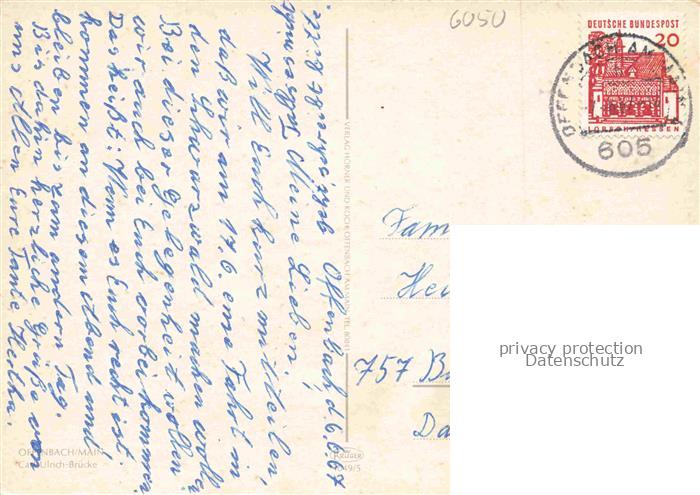 6050
DEUTSCHE BUNDESPOST
20
LORSCH/HESSEN
OFFENBACH AM MAIN
605
Offenbach, d. 6.6.67
Meine Lieben!
Will Euch kurz mitteilen,
daß wir am 17.6. eine Fahrt in
den Schwarzwald machen wollen
Bei dieser Gelegenheit wollen
wir auch bei Euch vorbei kommen
Das heißt: Wenn es Euch recht ist.
kommen an diesem Abend und
bleiben bis zum andern Tag.
Bis dahin herzliche Grüße von
uns Allen Eure Tante Hertha.
VERLAG HÖRNER UND KOCH OFFENBACH AM MAIN, TEL.
KRÜGER
/5
Fam
Hei
757 B
Da
privacy protection
Datenschutz
OFFENBACH/MAIN
Carl-Ulrich-Brücke